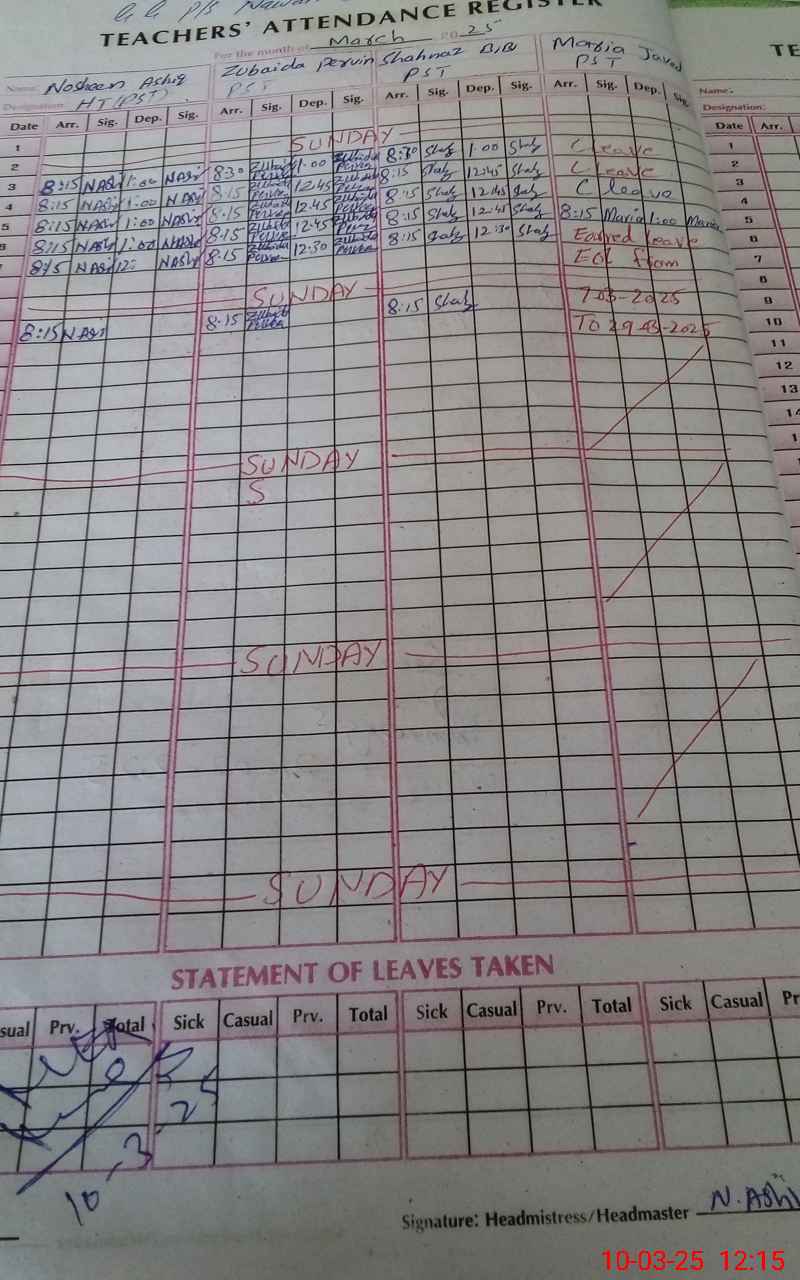 TEACHERS' ATTENDANCE REGISTER
For the month of March 2025
Name: Nosheen Ashiq Zubaida Pervin Shahnaz B,B Maria Javed
Designation: HT (PST) PST PST PST
Date Arr. Sig. Dep. Sig. Arr. Sig. Dep. Sig. Arr. Sig. Dep. Sig. Arr. Sig. Dep. Sig.
1
2 SUNDAY
3 8:15 NAShi 1:00 NAShi 8:30 Zubaida Pervin 1:00 Zubaida Pervin 8:30 Shah 1:00 Shah C leave
4 8:15 NAShi 1:00 NAShi 8:15 Zubaida Pervin 12:45 Zubaida Pervin 8:15 Shah 12:45 Shah C leave
5 8:15 NAShi 1:00 NAShi 8:15 Zubaida Pervin 12.45 Zubaida Pervin 8:15 Shah 12:45 Shah C leave
6 8:15 NAShi 1:00 NAShi 8:15 Zubaida Pervin 12:45 Zubaida Pervin 8:15 Shah 12:45 Shah 8:15 Maria 1:00 Maria
7 8:15 NAShi 12: NAShi 8:15 Zubaida Pervin 12:30 Zubaida Pervin 8:15 Shah 12:30 Shah Earned leave
EOL from
SUNDAY 7-03-2025
8:15 NAShi 8:15 Zubaida Pervin 8:15 Shah TO 29-03-2025
SUNDAY
S
SUNDAY
SUNDAY
STATEMENT OF LEAVES TAKEN
Prv. Total Sick Casual Prv. Total Sick Casual Prv. Total Sick Casual
10-3-25
Signature: Headmistress/Headmaster N. AShi
Name:
Designation:
Date Arr.
1
2
3
4
5
6
7
8
9
10
11
12
13
10-03-25 12:15